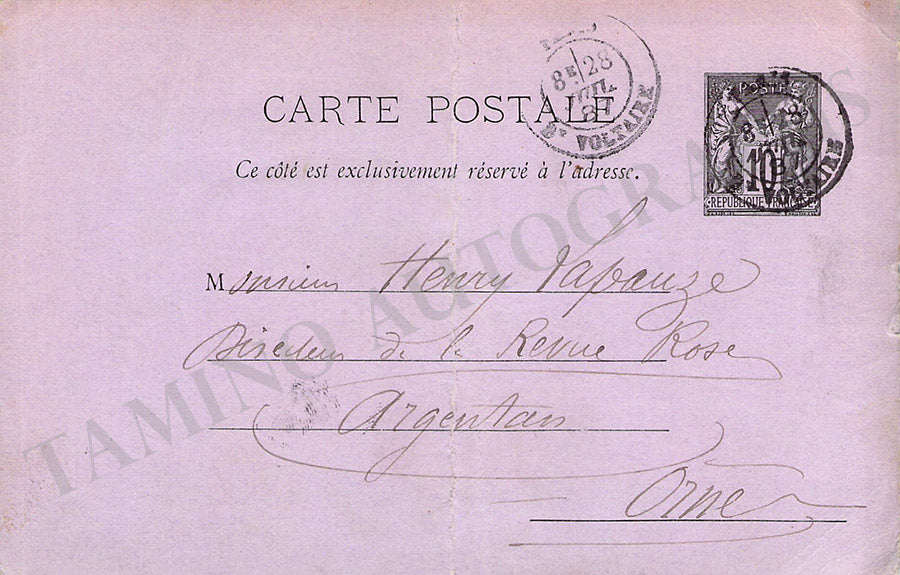 PARIS
8E 28
JUIL.
87
Bd VOLTAIRE
POSTES
10
REPUBLIQUE FRANCAISE
CARTE POSTALE
Ce côté est exclusivement réservé à l'adresse.
Monsieur Henry Lapauze
Directeur de la Revue Rose
Argentan
Orne
TAMINO AUTOGRAPHS